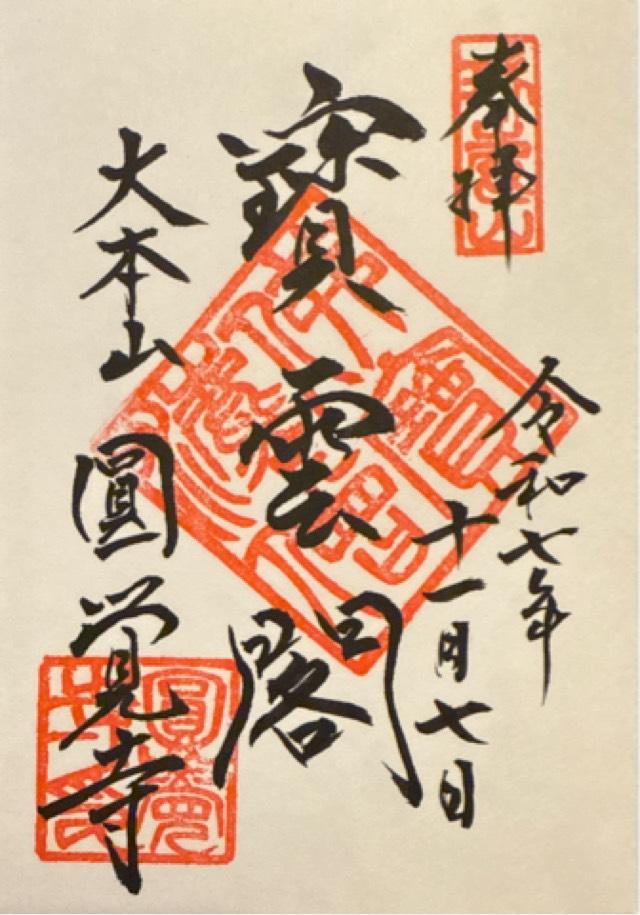 奉拝
令和七年
十一月七日
寳雲閣
大本山圓覚寺